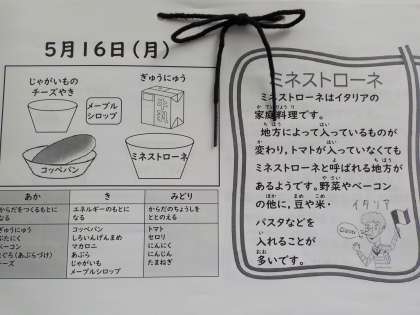 5月16日(月)
じゃがいもの
チーズやき
メープル
シロップ
ぎゅうにゅう
牛乳
コッペパン
ミネストローネ
あか
き
みどり
からだをつくるもとに
なる
エネルギーのもとに
なる
からだのちょうしを
ととのえる
ぎゅうにゅう
ぶたにく
ベーコン
まぐろ(あぶらづけ)
チーズ
コッペパン
しろいんげんまめ
マカロニ
あぶら
じゃがいも
メープルシロップ
トマト
セロリ
にんにく
にんじん
たまねぎ
ミネストローネ
ミネストローネはイタリアの
家庭料理です。
地方によって入っているものが
変わり,トマトが入っていなくても
ミネストローネと呼ばれる地方が
あるようです。野菜やベーコン
の他に,豆や米・
パスタなどを
入れることが
多いです。
イタリア